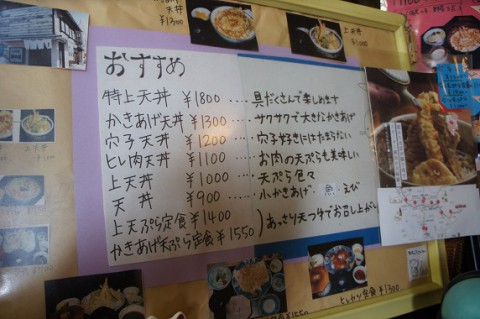 天丼
¥1300
上天丼
おすすめ
特上天丼 ¥1800 ‥‥ 具だくさんで楽しめます
かきあげ天丼 ¥1300 ‥‥ サクサクで大きなかきあげ
穴子天丼 ¥1200 ‥‥‥ 穴子好きにはたまらない
ヒレ肉天丼 ¥1100 ‥‥‥ お肉の天ぷらも美味しい
上天丼 ¥1000 ‥‥‥ 天ぷら色々
天丼 ¥900 ‥‥‥ 小かきあげ 魚・えび
上天ぷら定食 ¥1400
かきあげ天ぷら定食 ¥1550
)あっさり天つゆでお召し上がり
ヒレカツ定食 ¥1300